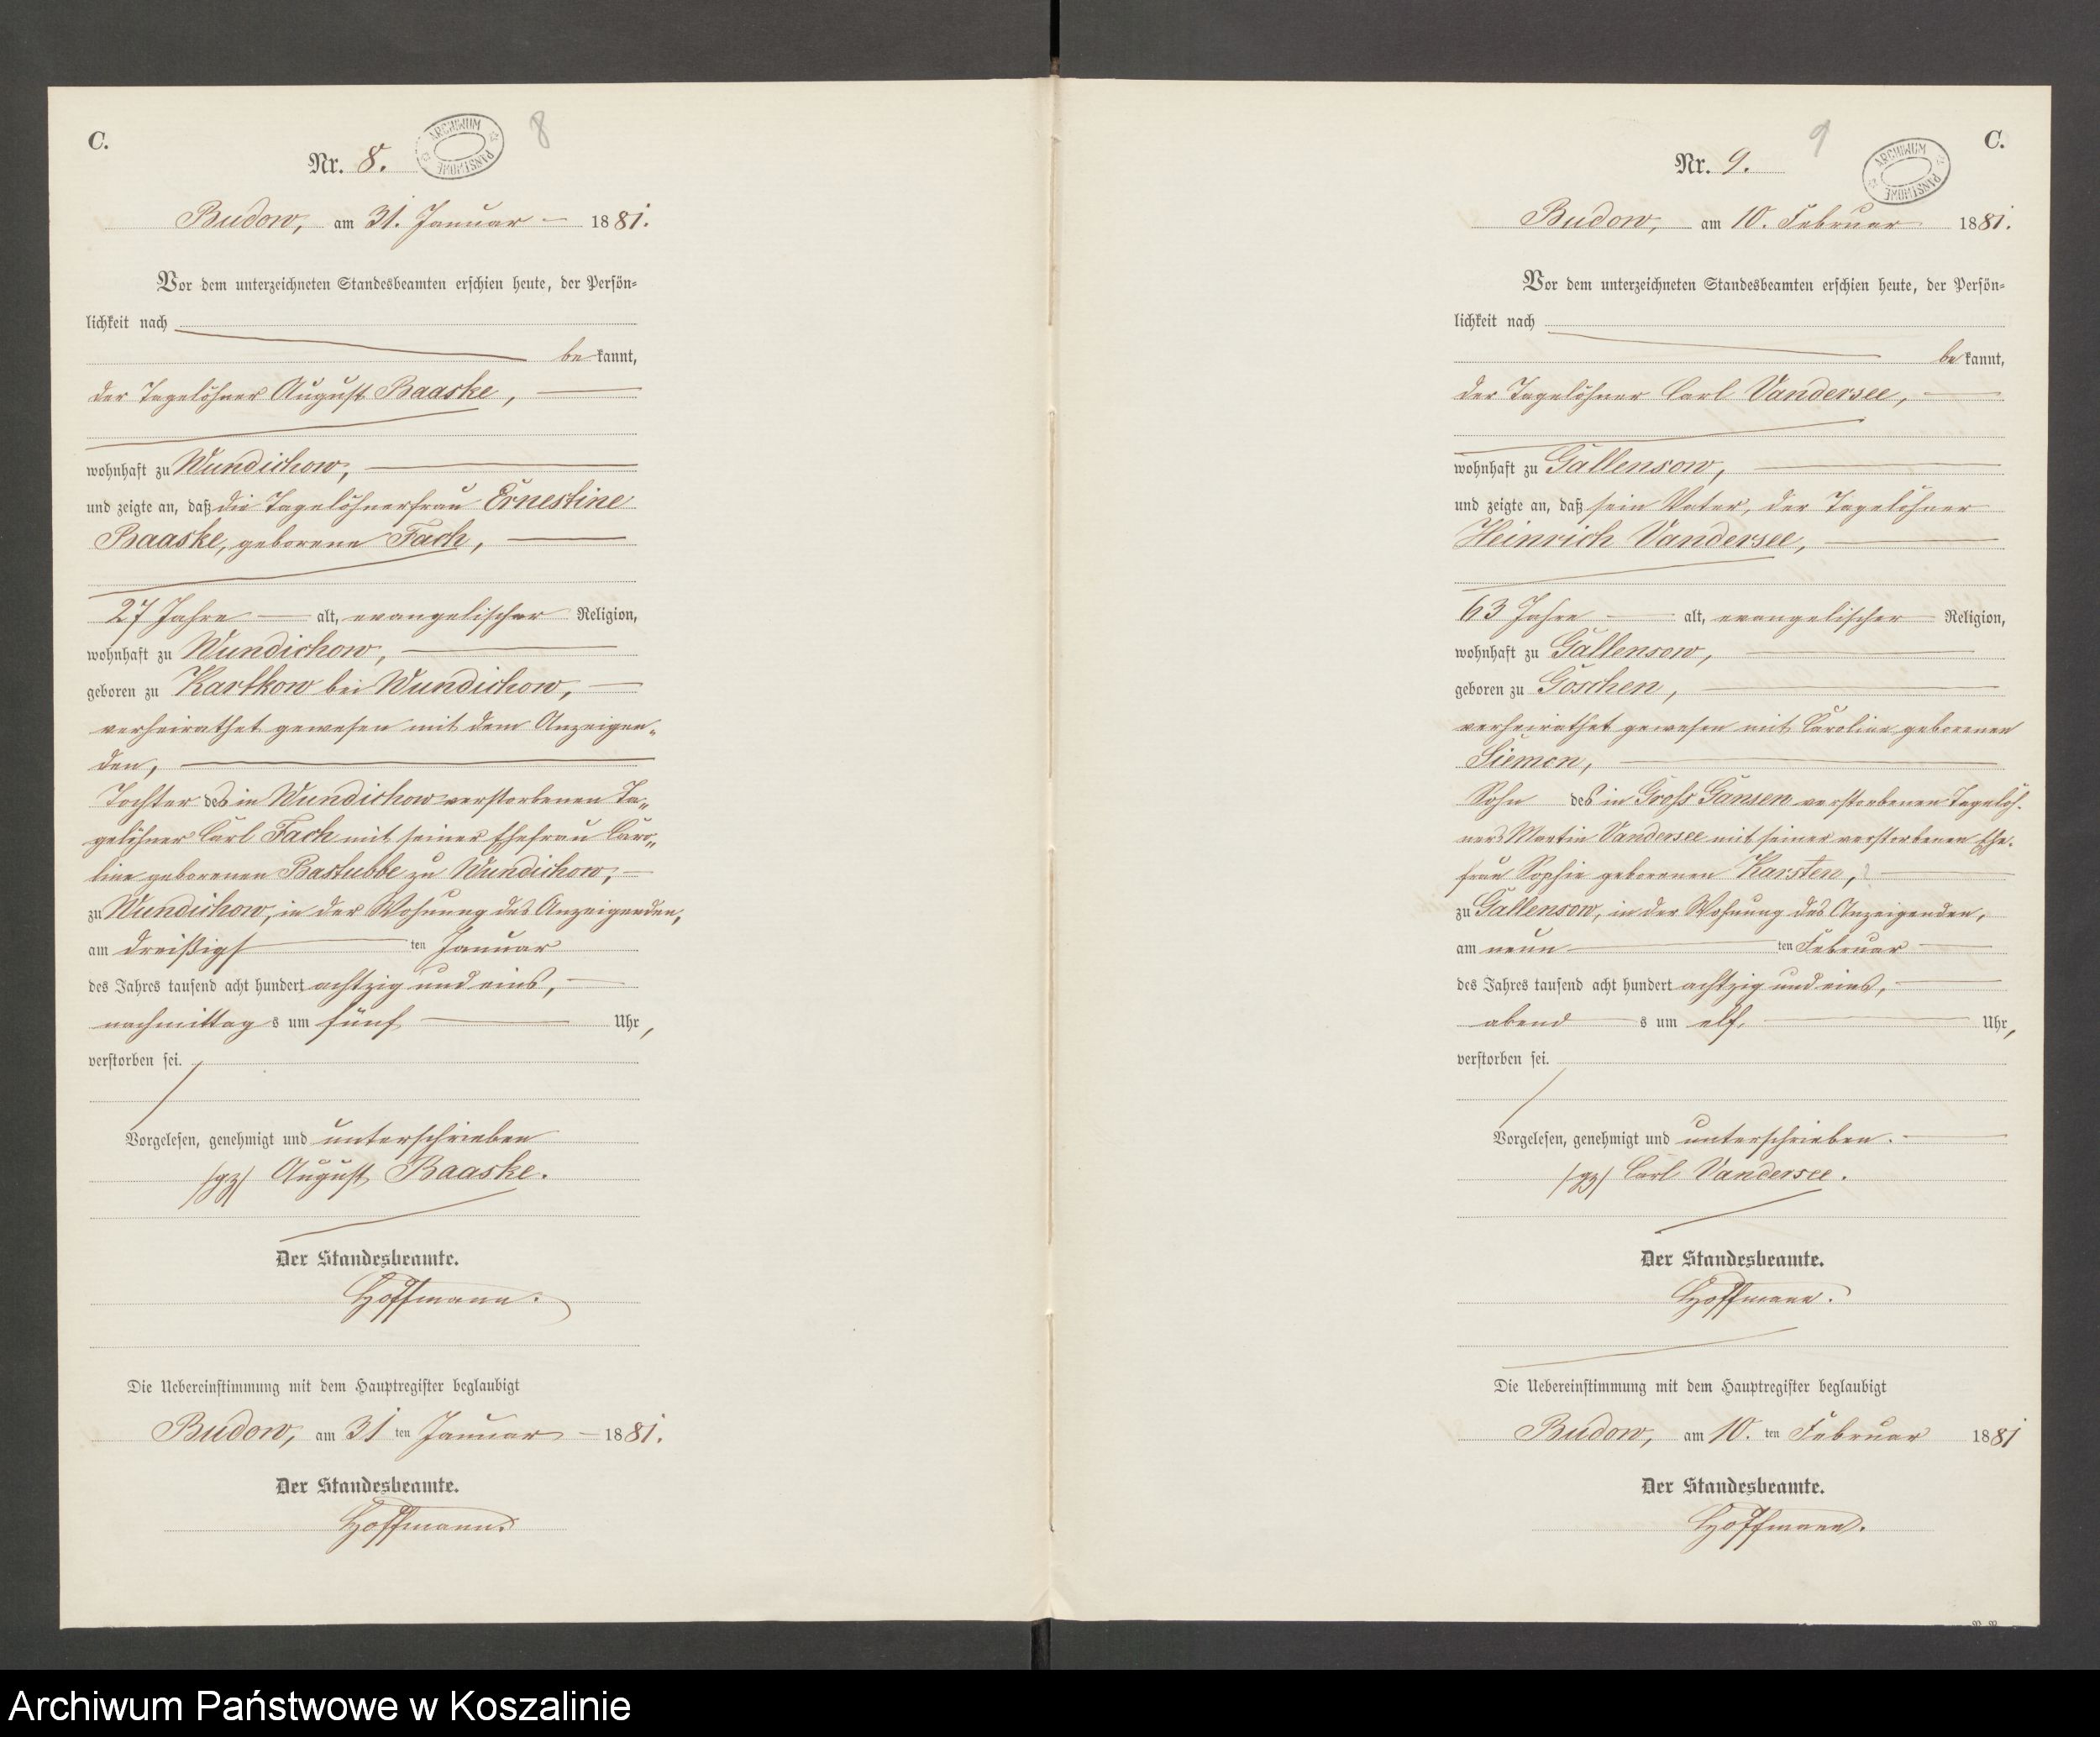 C.
Nr. 8.
ARCHIWUM PAŃSTWOWE
8
Budow, am 31. Januar 1881.
Vor dem unterzeichneten Standesbeamten erschien heute, der Persön-
lichkeit nach
be kannt,
der Tagelöhner August Baaske,
wohnhaft zu Wundichow,
und zeigte an, daß die Tagelöhnerfrau Ernestine
Baaske, geborene Fach,
27 Jahre alt, evangelischer Religion,
wohnhaft zu Wundichow,
geboren zu Kartkow bei Wundichow,
verheirathet gewesen mit dem Anzeigen-
den,
Tochter des in Wundichow verstorbenen Ta-
gelöhner Carl Fach mit seiner Ehefrau Caro-
line geborenen Bastubbe zu Wundichow,
zu Wundichow, in der Wohnung des Anzeigenden,
am dreißigs ten Januar
des Jahres tausend acht hundert achtzig und eins,
nachmittag s um fünf Uhr,
verstorben sei.
Vorgelesen, genehmigt und unterschrieben
/gz/ August Baaske.
Der Standesbeamte.
Hoffmann.
Die Uebereinstimmung mit dem Hauptregister beglaubigt
Budow, am 31 ten Januar 1881.
Der Standesbeamte.
Hoffmann.
9
C.
Nr. 9.
ARCHIWUM PAŃSTWOWE
Budow, am 10. Februar 1881.
Vor dem unterzeichneten Standesbeamten erschien heute, der Persön-
lichkeit nach
be kannt,
der Tagelöhner Carl Vandersee,
wohnhaft zu Gallensow,
und zeigte an, daß sein Vater, der Tagelöhner
Heinrich Vandersee,
63 Jahre alt, evangelischer Religion,
wohnhaft zu Gallensow,
geboren zu Goschen,
verheirathet gewesen mit Caroline geborenen
Siemon,
Sohn des in Gross Gansen verstorbenen Tagelöh-
ners Martin Vandersee mit seiner verstorbenen Ehe-
frau Sophie geborenen Karsten,
zu Gallensow, in der Wohnung des Anzeigenden,
am neun ten Februar
des Jahres tausend acht hundert achtzig und eins,
abend s um elf Uhr,
verstorben sei.
Vorgelesen, genehmigt und unterschrieben.
/gz/ Carl Vandersee.
Der Standesbeamte.
Hoffmann.
Die Uebereinstimmung mit dem Hauptregister beglaubigt
Budow, am 10. ten Februar 1881
Der Standesbeamte.
Hoffmann.
Archiwum Państwowe w Koszalinie